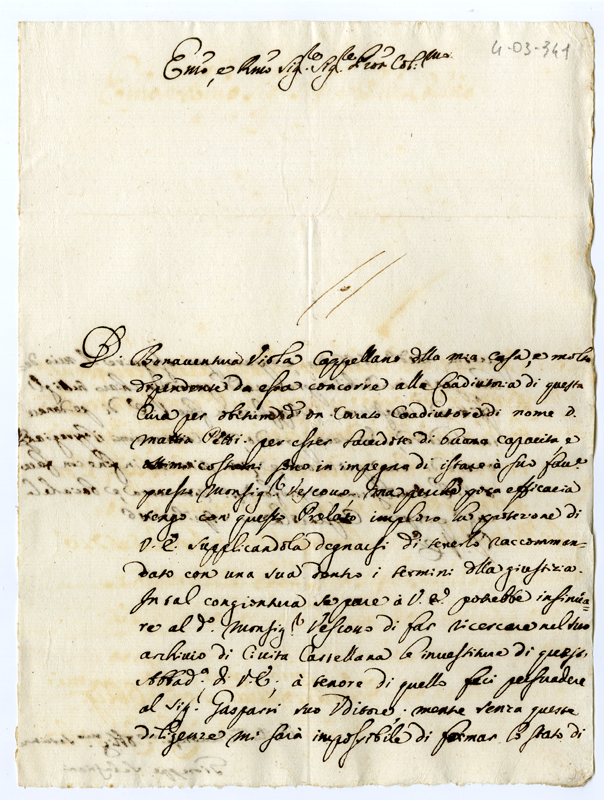 4-03-341
Em̃o, e Rm̃o Sig.re Sig.re Pron Col.mo
D. Bonaventura Viola Cappellano dlla mia casa, e molto
dependente da essa concorre alla Coadiutoria di questa
Cura per obitum d' un Curato Coadiutore di nome D.
Mattia Petti. per esser sacerdote di buona capacita e
ottimi costumi sono in impegno di istare à suo fau.e
presso Monsig.r Vescovo, ma perche poca efficacia
tengo con questo Prelato imploro la protezione di
V. E. supplicandola degnarsi di tenerlo raccomman-
dato con una sua dentro i termini dlla giustizia.
In tal congiontura se pare à V. E. potrebbe insinua-
re al d.o Monsig.r Vescovo di far ricercare nel suo
archivio di Civita Castellana le investiture di questa
Abbad.a di V. E., à tenore di quello feci persuadere
al Sig.r Gasparri suo Uditore, mentre senza queste
diligenze mi sarà impossibile di formar lo stato di